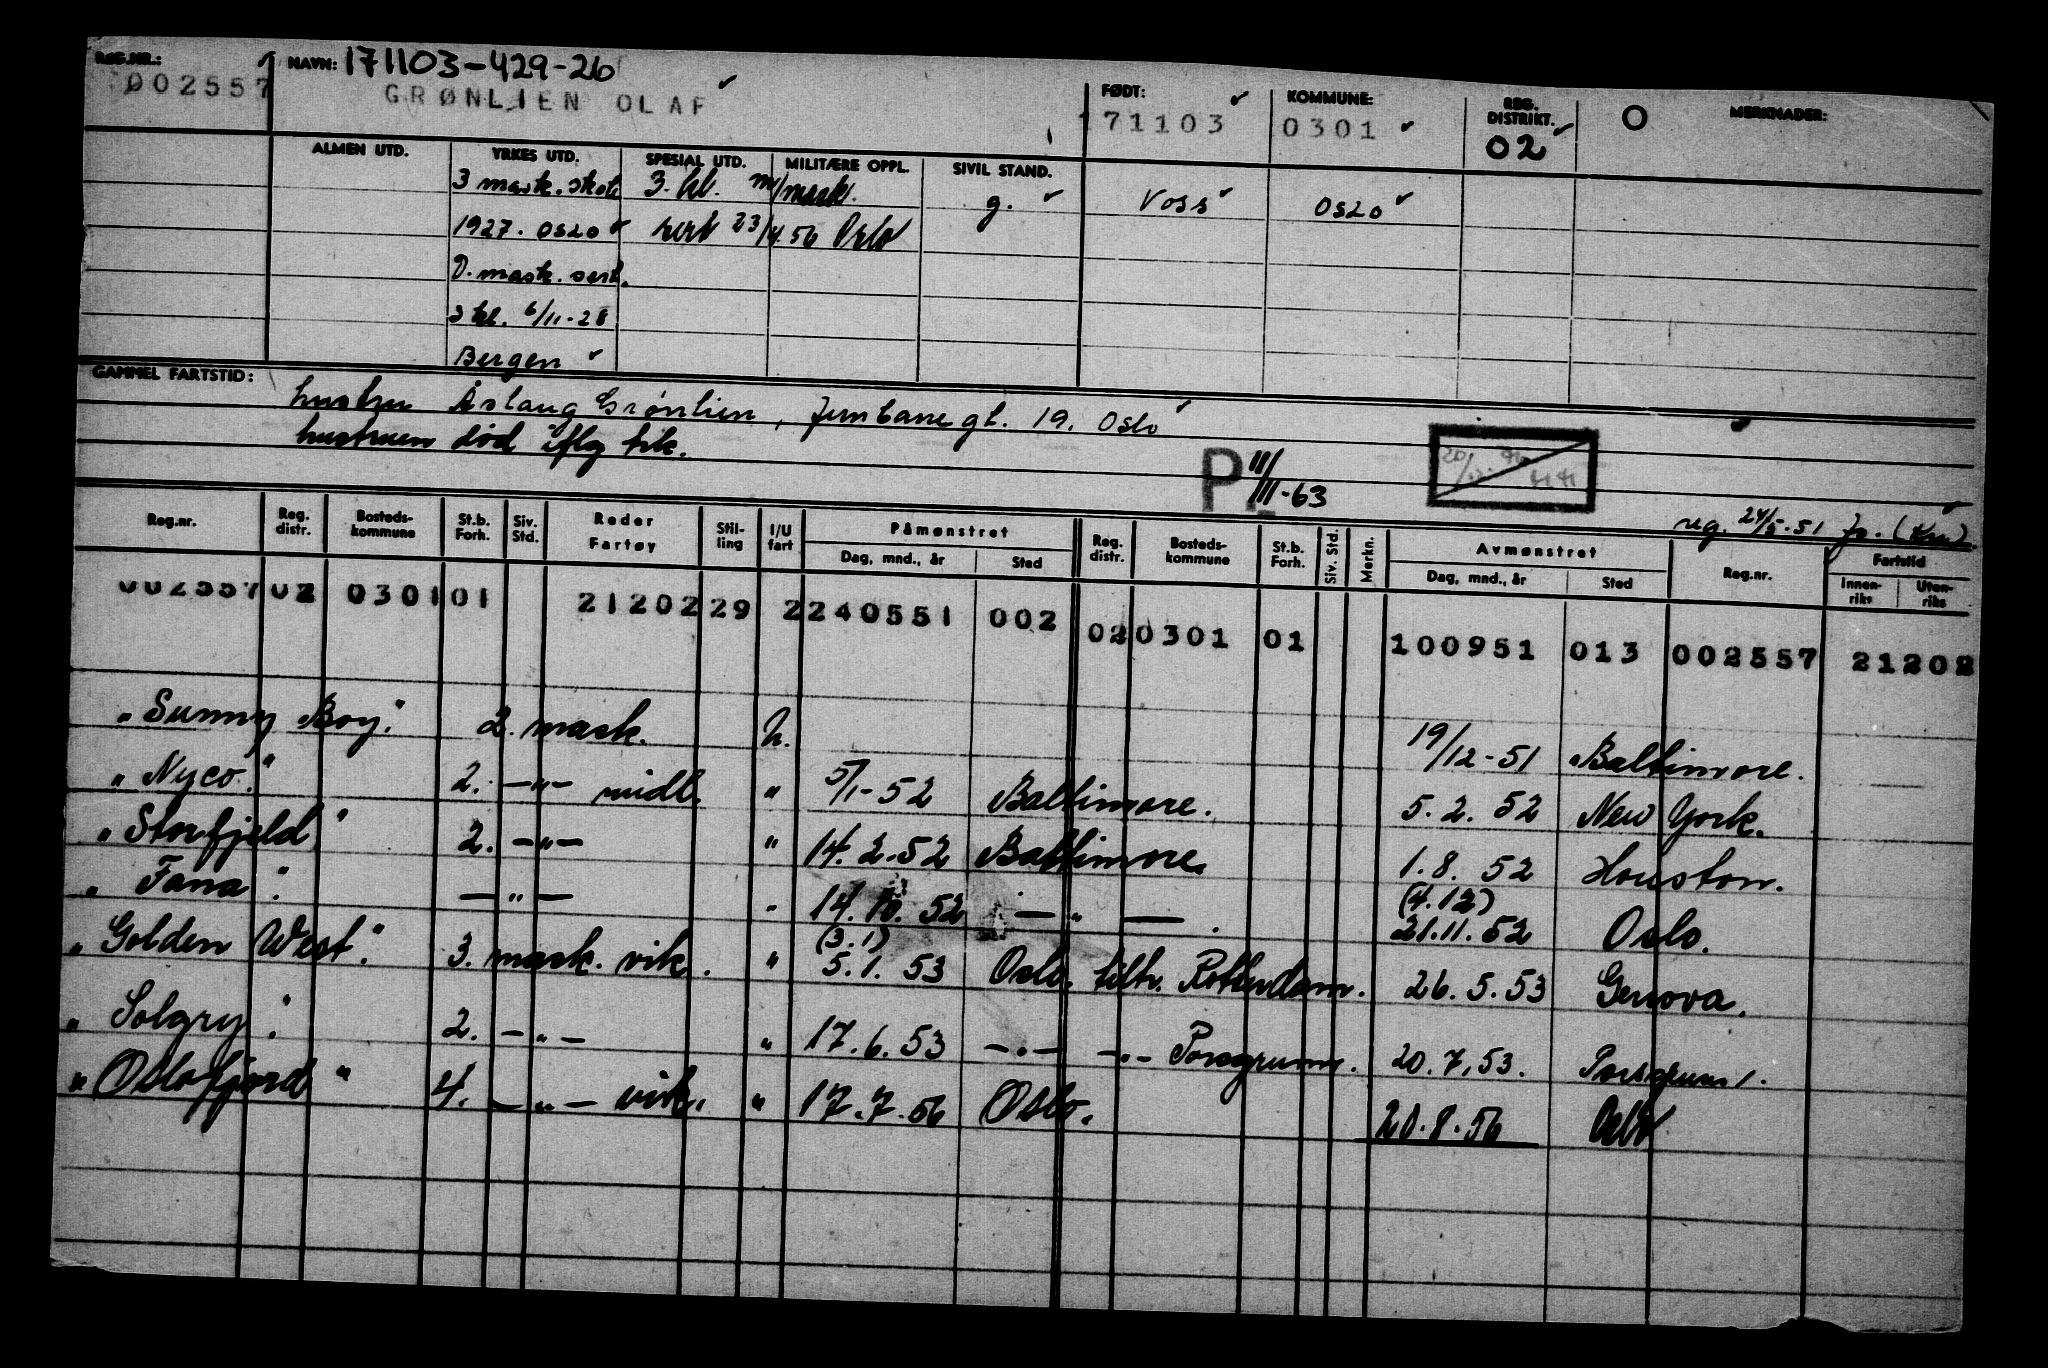 REG.NR.: NAVN: 171103-429-26
002557 GRØNLIEN OLAF
FØDT: KOMMUNE: REG. DISTRIKT. O MERKNADER:
171103 0301 02
ALMEN UTD. YRKES UTD. SPESIAL UTD. MILITÆRE OPPL. SIVIL STAND.
3 mask. skole 3. kl. m/mask. g. Voss Oslo
1927. Oslo sert 23/4.56 Oslo
D. mask. sert.
3 kl. 6/11-28
Bergen
GAMMEL FARTSTID: hustru Åslaug Grønlien, Jernbanegt. 19. Oslo
hustruen død iflg tlk.
P II/III-63
reg. 24/5-51
Reg.nr. Reg. distr. Bosteds- kommune St.b. Forh. Siv. Std. Reder Fartøy Stil- ling I/U fart Påmønstret Dag, mnd., år Sted Reg. distr. Bosteds- kommune St.b. Forh. Siv. Std. Merkn. Avmønstret Dag, mnd., år Sted Reg.nr. Fartstid Innen- riks Uten- riks
002557 02 0301 01 21202 29 2 240551 002 02 0301 01 100951 013 002557 21202
"Sunny Boy." 2. mask. U. 19/12-51 Baltimore.
"Nyco." 2. -"- midl. " 5/1-52 Baltimore. 5.2.52 New York.
"Storfjeld" 2. -"- " 14.2.52 Baltimore. 1.8.52 Houston.
"Fana". -"- " 14.10.52 -"- . (4.12) 21.11.52 Oslo.
"Golden West". 3. mask. vik. " (3.1) 5.1.53 Oslo. tiltr. Rotterdam. 26.5.53 Genova.
"Solgry". 2. -"- " 17.6.53 -"- -"- Porsgrunn. 20.7.53. Porsgrunn.
"Oslofjord" 4. -"- vik. " 17.7.56 Oslo. 20.8.56 Oslo